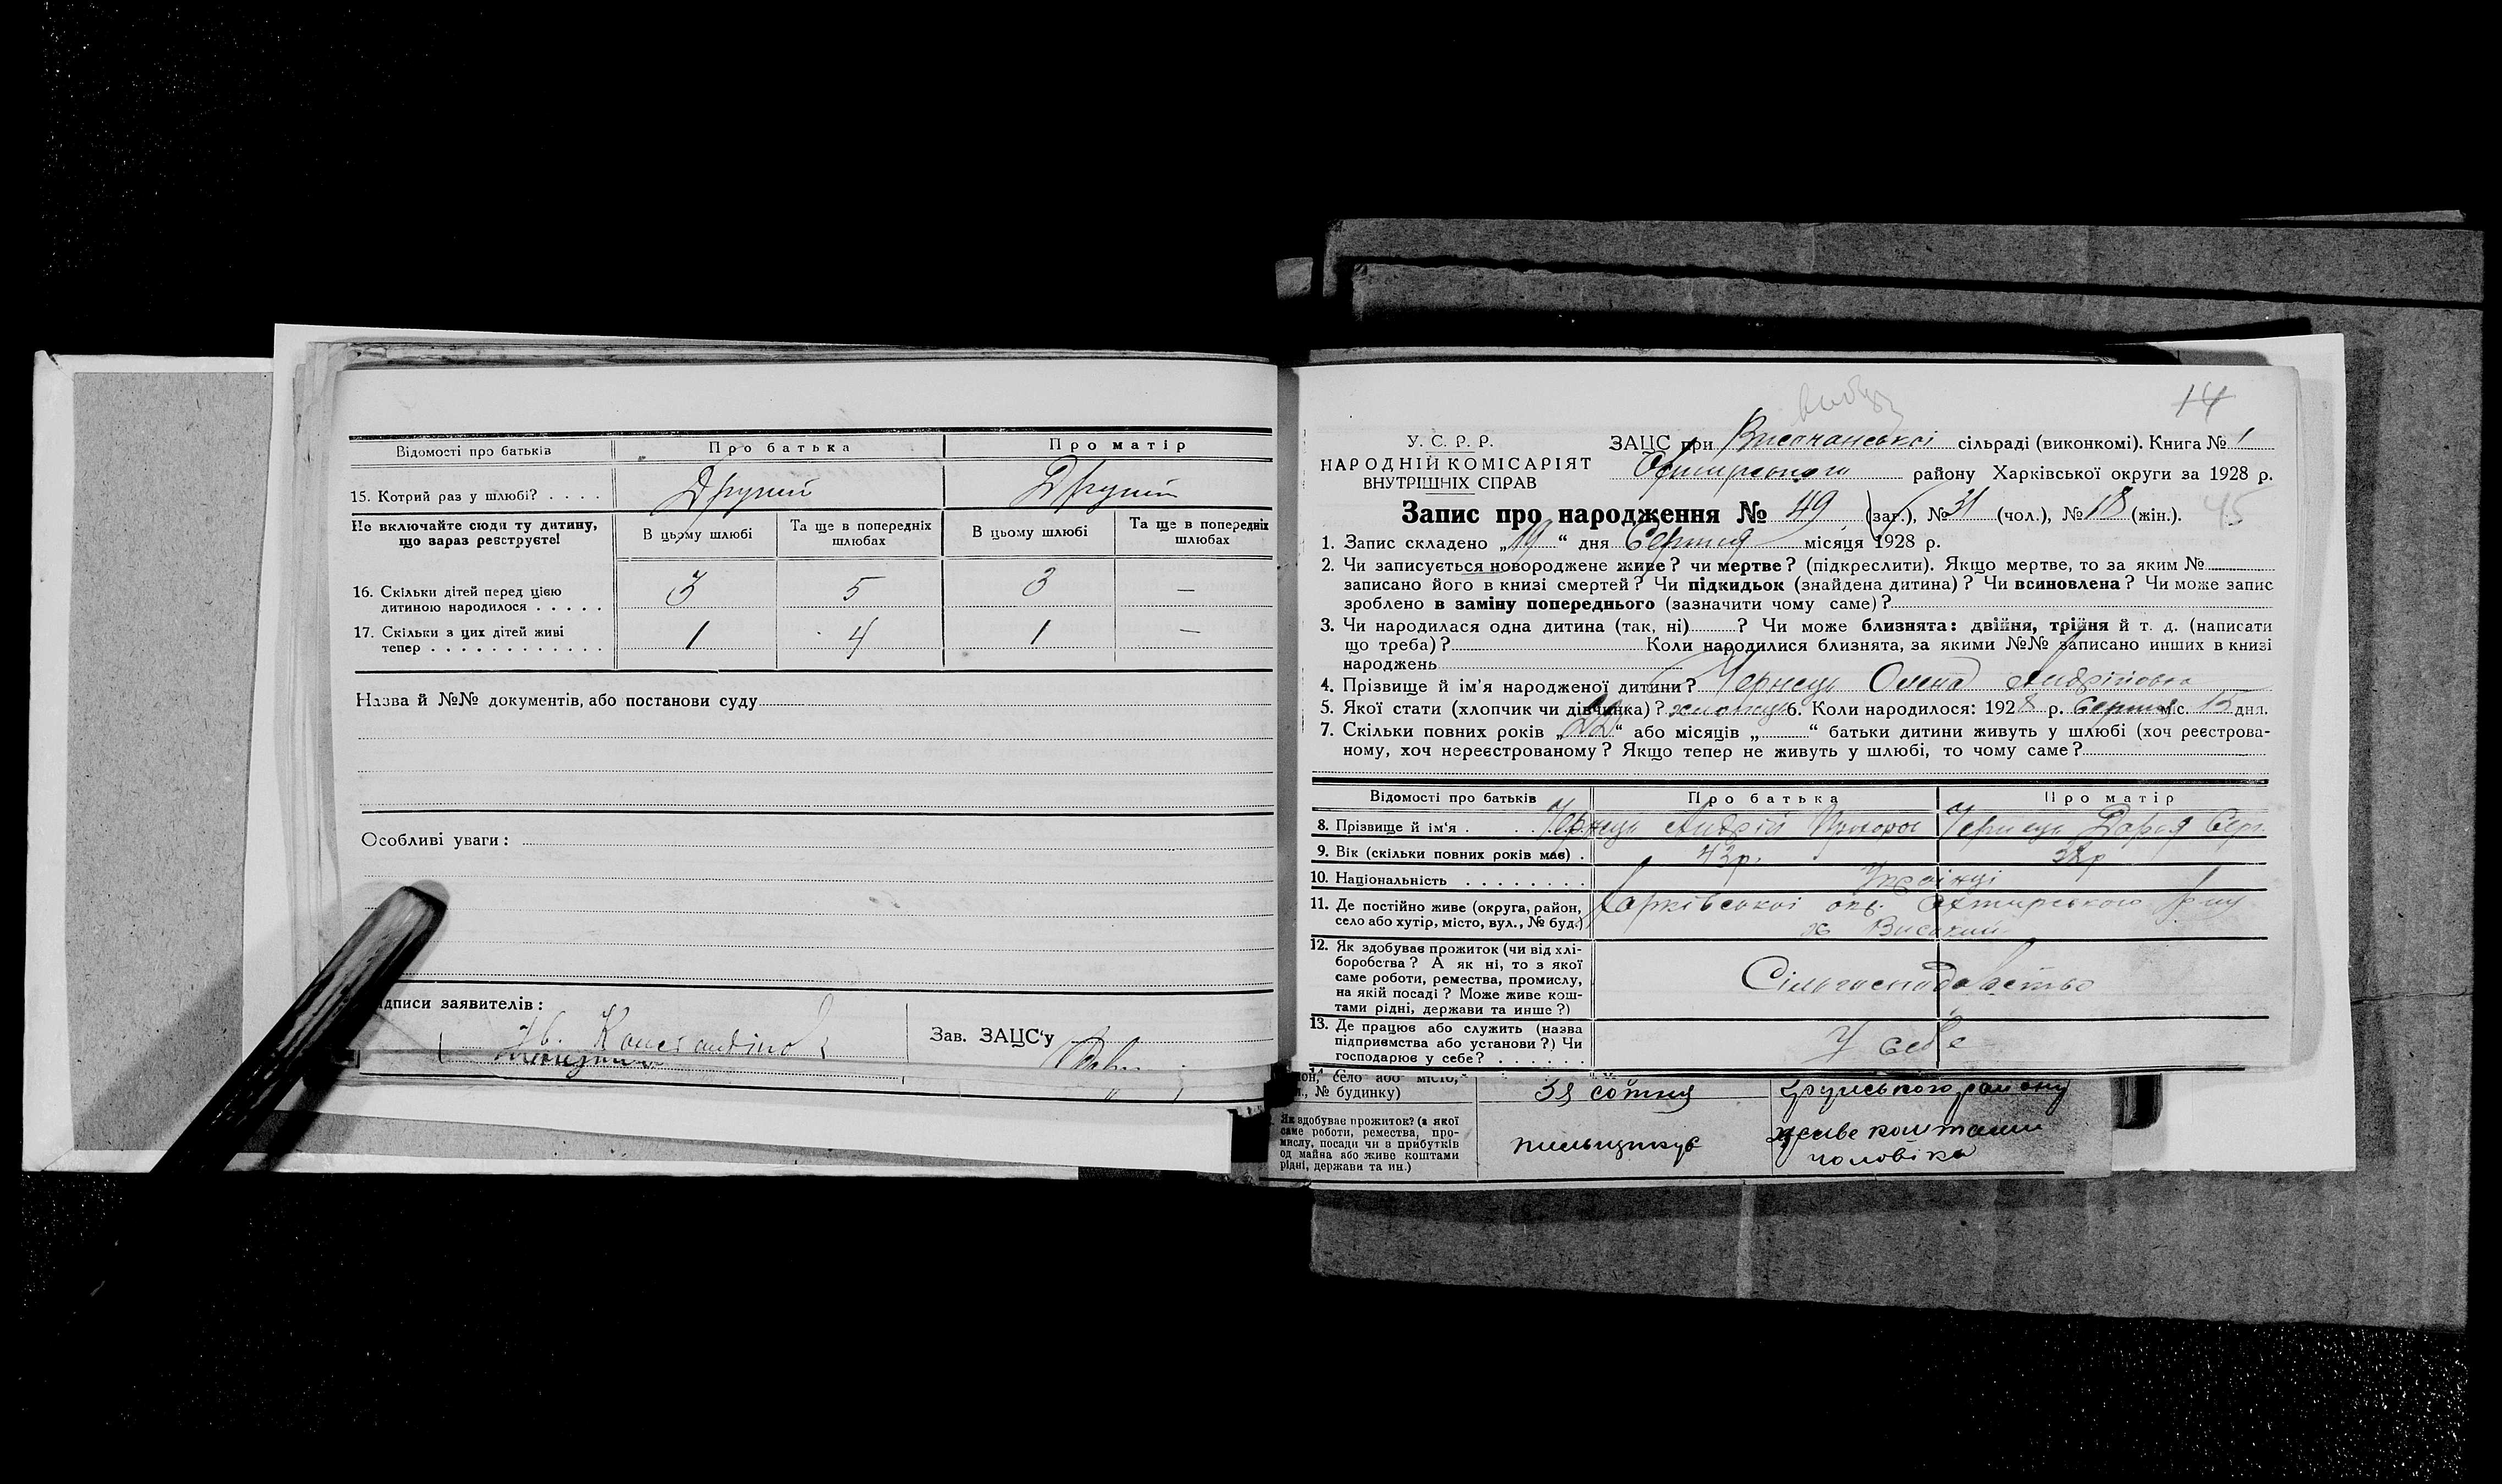 Відомості про батьків Про батька Про матір
15. Котрий раз у шлюбі? . . . . Другий Другий
Не включайте сюди ту дитину, що зараз реєструєте! В цьому шлюбі Та ще в попередніх шлюбах В цьому шлюбі Та ще в попередніх шлюбах
16. Скільки дітей перед цією
дитиною народилося . . . . . 3 5 3 —
17. Скільки з цих дітей живі
тепер . . . . . . . . . . . . 1 4 1 —
Назва й №№ документів, або постанови суду
Особливі уваги:
дписи заявителів:
Зав. ЗАЦС'у
14
У. С. Р. Р.
НАРОДНІЙ КОМІСАРІЯТ
ВНУТРІШНІХ СПРАВ
ЗАЦС при Височанській сільраді (виконкомі). Книга № 1
району Харківської округи за 1928 р.
Запис про народження № 49 (заг.), № 31 (чол.), № 18 (жін.). 45
1. Запис складено „19“ дня Серпня місяця 1928 р.
2. Чи записується новороджене живе? чи мертве? (підкреслити). Якщо мертве, то за яким №
записано його в книзі смертей? Чи підкидьок (знайдена дитина)? Чи всиновлена? Чи може запис
зроблено в заміну попереднього (зазначити чому саме)?
3. Чи народилася одна дитина (так, ні)? Чи може близнята: двійня, трійня й т. д. (написати
що треба)? Коли народилися близнята, за якими №№ записано инших в книзі
народжень
4. Прізвище й ім'я народженої дитини? Чернець Олена Андрійовна
5. Якої стати (хлопчик чи дівчинка)? 6. Коли народилося: 1928 р. Серпня міс. 15 дня.
7. Скільки повних років „ “ або місяців „ “ батьки дитини живуть у шлюбі (хоч реєстрова-
ному, хоч нереєстрованому? Якщо тепер не живуть у шлюбі, то чому саме?
Відомості про батьків Про батька Про матір
8. Прізвище й ім'я . . . . Чернець Андрій Чернець Дарья
9. Вік (скільки повних років має) . 43р. 38р
10. Національність . . . . . . . . Українці
11. Де постійно живе (округа, район,
село або хутір, місто, вул., № буд.) Харківської окр. Охтирського р-ну
х Високий
12. Як здобуває прожиток (чи від хлі-
боробства? А як ні, то з якої
саме роботи, ремества, промислу,
на якій посаді? Може живе кош-
тами рідні, держави та инше?) Сільгосподарство
13. Де працює або служить (назва
підприємства або установи?) Чи
господарює у себе? . . . . . . У себе
он, село або місто,
№ будинку) 3я сотня району
Як здобуває прожиток? (з якої
саме роботи, ремества, про-
мислу, посади чи з прибутків
од майна або живе коштами
рідні, держави та ин.) пильщикує живе коштами
чоловіка